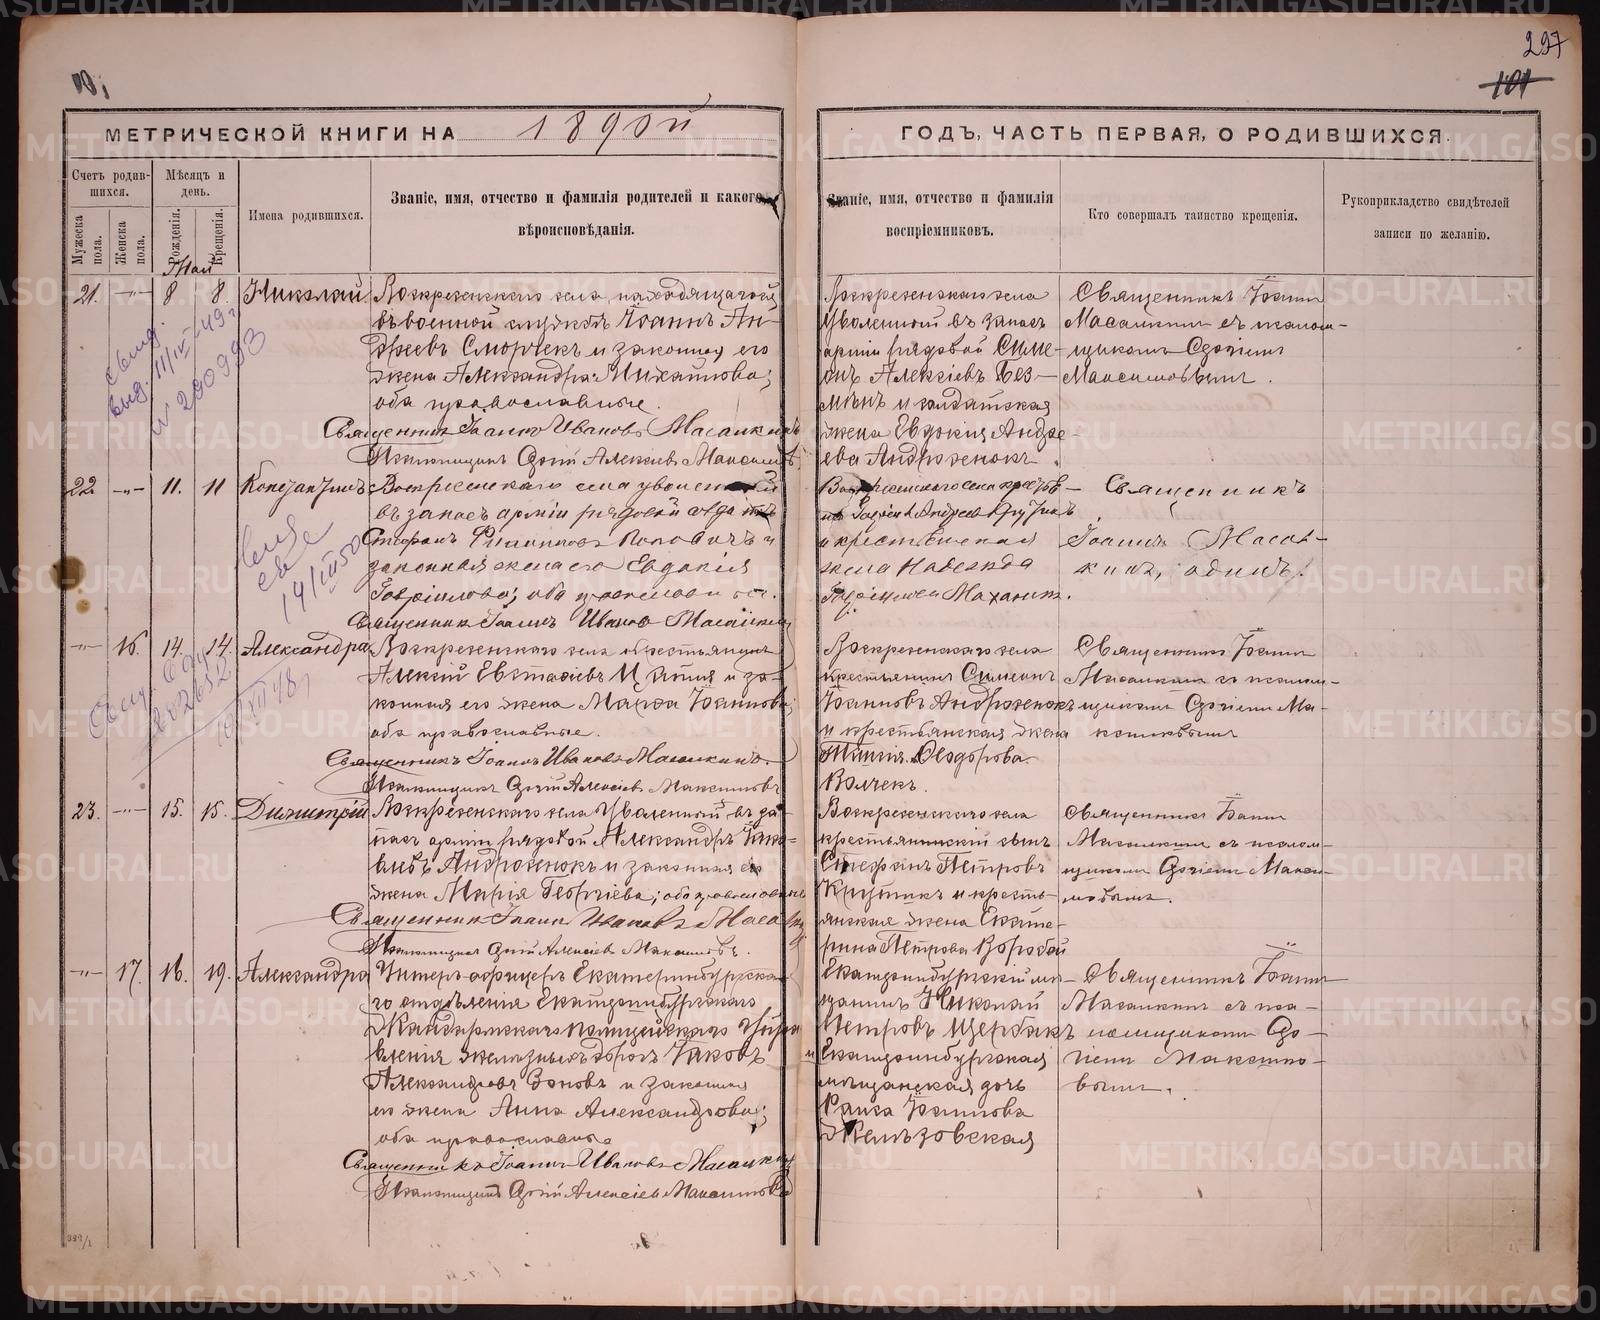 297
101
МЕТРИЧЕСКОЙ КНИГИ НА 1890й
ГОДЪ, ЧАСТЬ ПЕРВАЯ, О РОДИВШИХСЯ.
Счетъ родив-
шихся.
Мужеска пола.
Женска пола.
Мѣсяцъ и
день.
Рожденія.
Крещенія.
Имена родившихся.
Званіе, имя, отчество и фамилія родителей и какого
вѣроисповѣданія.
Званіе, имя, отчество и фамилія
воспріемниковъ.
Кто совершалъ таинство крещенія.
Рукоприкладство свидѣтелей
записи по желанію.
Май
21. —"— 8. 8. Николай
Воскресенскаго села, находящагося
въ военной службѣ Іоаннъ Ан-
дреевъ Сморчекъ и законная его
жена Александра Михайлова;
оба православные.
Священникъ Іоаннъ Ивановъ Масалкинъ
Псаломщикъ Алексіевъ Максимовъ
Воскресенскаго села
уволенный въ запасъ
арміи рядовой Симе-
онъ Алексіевъ Без-
и солдатская
жена Евдокія Андре-
ева Андрозенокъ.
Священникъ Іоаннъ
Масалкинъ съ псалом-
щикомъ
Максимовымъ.
22 —"— 11. 11 Константинъ
Воскресенскаго села уволенный
въ запасъ арміи рядовой
Стефанъ Филипповъ Поповичъ и
законная жена его Евдокія
Гавріилова; оба православные.
Священникъ Іоаннъ Ивановъ Масалкинъ
Воскресенскаго села
Андреевъ
и крестьянская
жена Надежда
Махантъ.
Священникъ
Іоаннъ Масал-
кинъ, одинъ.
—"— 16. 14. 14. Александра
Воскресенскаго села крестьянинъ
Алексій Евстафіевъ и за-
конная его жена Марфа Іоаннова;
оба православные.
Священникъ Іоаннъ Ивановъ Масалкинъ.
Псаломщикъ Алексіевъ Максимовъ
Воскресенскаго села
крестьянинъ Симеонъ
Іоанновъ Андрозенокъ
и крестьянская жена
Ѳеодорова
Волчекъ.
Священникъ Іоаннъ
Масалкинъ съ псалом-
щикомъ Ма-
ксимовымъ
23. —"— 15. 15. Димитрій
Воскресенскаго села уволенный въ за-
пасъ арміи рядовой Александръ Іако-
влевъ Андрозенокъ и законная его
жена Марія Георгіева; оба православные
Священникъ Іоаннъ Ивановъ Масалкинъ
Псаломщикъ Алексіевъ Максимовъ.
Воскресенскаго села
крестьянскій сынъ
Стефанъ Петровъ
и кресть-
янская жена Екате-
рина Петрова Воробей
Священникъ Іоаннъ
Масалкинъ съ псалом-
щикомъ Макси-
мовымъ.
—"— 17. 16. 19. Александра
Унтеръ-офицеръ Екатеринбургска-
го отдѣленія Екатеринбургскаго
Жандармскаго полицейскаго Упра-
вленія желѣзныхъ дорогъ Іаковъ
Александровъ Зоновъ и законная
его жена Анна Александрова;
оба православные
Священникъ Іоаннъ Ивановъ Масалкинъ
Псаломщикъ Алексіевъ Максимовъ
Екатеринбургскій мѣ-
щанинъ Николай
Петровъ Щербакъ
и Екатеринбургская
мѣщанская дочь
Раиса Іоаннова
Желѣзовская
Священникъ Іоаннъ
Масалкинъ съ пса-
ломщикомъ
Максимо-
вымъ.
METRIKI.GASO-URAL.RU